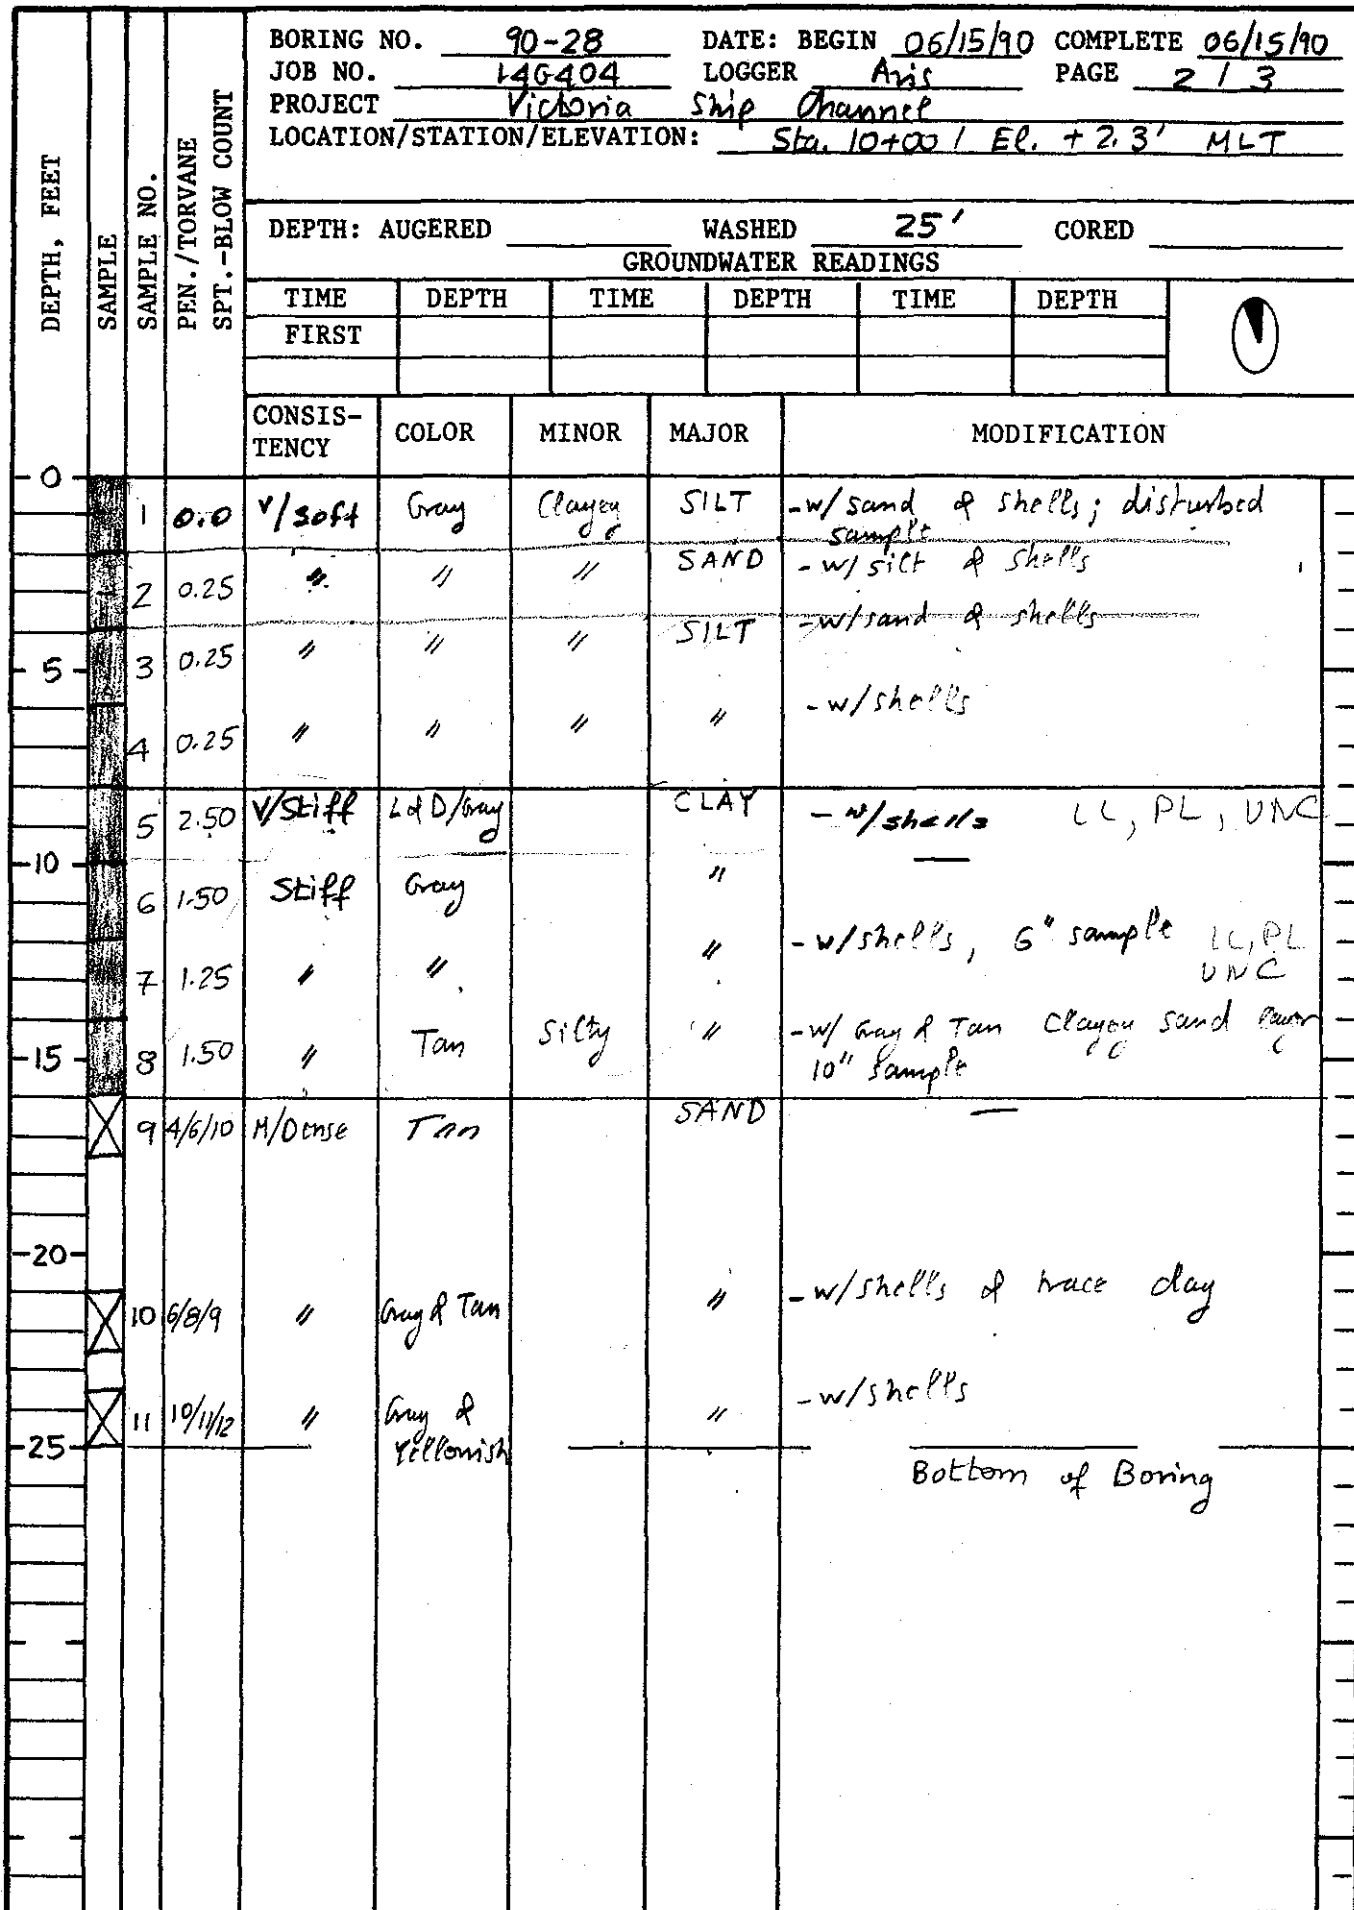 BORING NO. 90-28 DATE: BEGIN 06/15/90 COMPLETE 06/15/90
JOB NO. 14G404 LOGGER Aris PAGE 2 / 3
PROJECT Victoria Ship Channel
LOCATION/STATION/ELEVATION: Sta. 10+00 / El. +2.3' MLT
DEPTH: AUGERED WASHED 25' CORED
GROUNDWATER READINGS
TIME DEPTH TIME DEPTH TIME DEPTH
FIRST
DEPTH, FEET
SAMPLE
SAMPLE NO.
PEN./TORVANE
SPT.-BLOW COUNT
CONSIS-
TENCY COLOR MINOR MAJOR MODIFICATION
0
1 0.0 V/Soft Gray Clayey SILT -w/sand & shells; disturbed
sample
2 0.25 〃 〃 〃 SAND -w/silt & shells
5 3 0.25 〃 〃 〃 SILT -w/sand & shells
4 0.25 〃 〃 〃 〃 -w/shells
5 2.50 V/Stiff L&D/Gray CLAY -w/shells LL, PL, UNC
10
6 1.50 Stiff Gray 〃 —
7 1.25 〃 〃 〃 -w/shells, 6" sample LL, PL
UNC
15 8 1.50 〃 Tan Silty 〃 -w/ Gray & Tan Clayey sand layer
10" sample
9 4/6/10 M/Dense Tan SAND —
20
10 6/8/9 〃 Gray & Tan 〃 -w/shells & trace clay
11 10/11/12 〃 Gray & 〃 -w/shells
25 Yellowish
Bottom of Boring